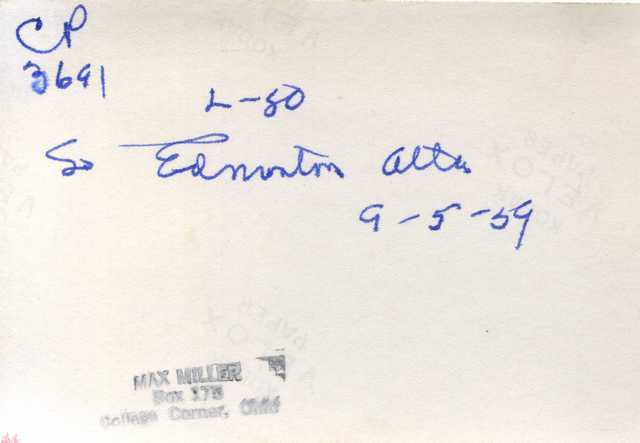 CP
3691
L-80
So Edmonton Alta
9-5-59
MAX MILLER
Box 178
College Corner, Ohio
VELOX